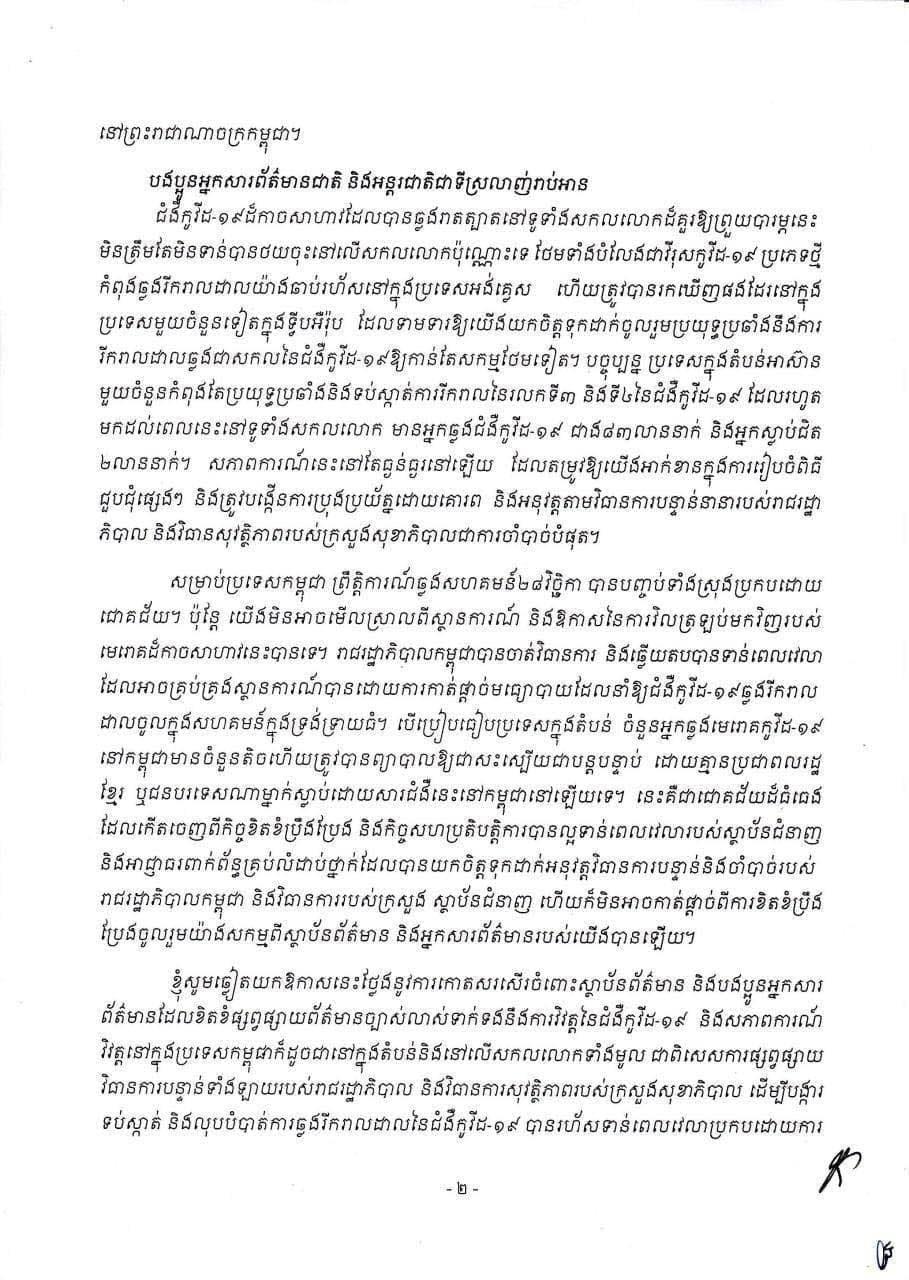 នៅព្រះរាជាណាចក្រកម្ពុជា។
បងប្អូនអ្នកសារព័ត៌មានជាតិ និងអន្តរជាតិជាទីស្រលាញ់រាប់អាន
ជំងឺកូវីដ-១៩ដ៏កាចសាហាវដែលបានឆ្លងរាតត្បាតនៅទូទាំងសកលលោកដ៏គួរឱ្យព្រួយបារម្ភនេះ
មិនត្រឹមតែមិនទាន់បានថយចុះនៅលើសកលលោកប៉ុណ្ណោះទេ ថែមទាំងបំលែងជាវីរុសកូវីដ-១៩ ប្រភេទថ្មី
កំពុងឆ្លងរីករាលដាលយ៉ាងឆាប់រហ័សនៅក្នុងប្រទេសអង់គ្លេស ហើយត្រូវបានរកឃើញផងដែរនៅក្នុង
ប្រទេសមួយចំនួនទៀតក្នុងទ្វីបអឺរ៉ុប ដែលទាមទារឱ្យយើងយកចិត្តទុកដាក់ចូលរួមប្រយុទ្ធប្រឆាំងនឹងការ
រីករាលដាលឆ្លងជាសកលនៃជំងឺកូវីដ-១៩ឱ្យកាន់តែសកម្មថែមទៀត។ បច្ចុប្បន្ន ប្រទេសក្នុងតំបន់អាស៊ាន
មួយចំនួនកំពុងតែប្រយុទ្ធប្រឆាំងនិងទប់ស្កាត់ការរីករាលនៃរលកទី៣ និងទី៤នៃជំងឺកូវីដ-១៩ ដែលរហូត
មកដល់ពេលនេះនៅទូទាំងសកលលោក មានអ្នកឆ្លងជំងឺកូវីដ-១៩ ជាង៨៣លាននាក់ និងអ្នកស្លាប់ជិត
២លាននាក់។ សភាពការណ៍នេះនៅតែធ្ងន់ធ្ងរនៅឡើយ ដែលតម្រូវឱ្យយើងអាក់ខានក្នុងការរៀបចំពិធី
ជួបជុំផ្សេងៗ និងត្រូវបង្កើនការប្រុងប្រយ័ត្នដោយគោរព និងអនុវត្តតាមវិធានការបន្ទាន់នានារបស់រាជរដ្ឋា
ភិបាល និងវិធានសុវត្ថិភាពរបស់ក្រសួងសុខាភិបាលជាការចាំបាច់បំផុត។
សម្រាប់ប្រទេសកម្ពុជា ព្រឹត្តិការណ៍ឆ្លងសហគមន៍២៨វិច្ឆិកា បានបញ្ចប់ទាំងស្រុងប្រកបដោយ
ជោគជ័យ។ ប៉ុន្តែ យើងមិនអាចមើលស្រាលពីស្ថានការណ៍ និងឱកាសនៃការវិលត្រឡប់មកវិញរបស់
មេរោគដ៏កាចសាហាវនេះបានទេ។ រាជរដ្ឋាភិបាលកម្ពុជាបានចាត់វិធានការ និងឆ្លើយតបបានទាន់ពេលវេលា
ដែលអាចគ្រប់គ្រងស្ថានការណ៍បានដោយការកាត់ផ្តាច់មធ្យោបាយដែលនាំឱ្យជំងឺកូវីដ-១៩ឆ្លងរីករាល
ដាលចូលក្នុងសហគមន៍ក្នុងទ្រង់ទ្រាយធំ។ បើប្រៀបធៀបប្រទេសក្នុងតំបន់ ចំនួនអ្នកឆ្លងមេរោគកូវីដ-១៩
នៅកម្ពុជាមានចំនួនតិចហើយត្រូវបានព្យាបាលឱ្យជាសះស្បើយជាបន្តបន្ទាប់ ដោយគ្មានប្រជាពលរដ្ឋ
ខ្មែរ ឬជនបរទេសណាម្នាក់ស្លាប់ដោយសារជំងឺនេះនៅកម្ពុជានៅឡើយទេ។ នេះគឺជាជោគជ័យដ៏ធំធេង
ដែលកើតចេញពីកិច្ចខិតខំប្រឹងប្រែង និងកិច្ចសហប្រតិបត្តិការបានល្អទាន់ពេលវេលារបស់ស្ថាប័នជំនាញ
និងអាជ្ញាធរពាក់ព័ន្ធគ្រប់លំដាប់ថ្នាក់ដែលបានយកចិត្តទុកដាក់អនុវត្តវិធានការបន្ទាន់និងចាំបាច់របស់
រាជរដ្ឋាភិបាលកម្ពុជា និងវិធានការរបស់ក្រសួង ស្ថាប័នជំនាញ ហើយក៏មិនអាចកាត់ផ្តាច់ពីការខិតខំប្រឹង
ប្រែងចូលរួមយ៉ាងសកម្មពីស្ថាប័នព័ត៌មាន និងអ្នកសារព័ត៌មានរបស់យើងបានឡើយ។
ខ្ញុំសូមឆ្លៀតយកឱកាសនេះថ្លែងនូវការកោតសរសើរចំពោះស្ថាប័នព័ត៌មាន និងបងប្អូនអ្នកសារ
ព័ត៌មានដែលខិតខំផ្សព្វផ្សាយព័ត៌មានច្បាស់លាស់ទាក់ទងនឹងការវិវត្តនៃជំងឺកូវីដ-១៩ និងសភាពការណ៍
វិវត្តនៅក្នុងប្រទេសកម្ពុជាក៏ដូចជានៅក្នុងតំបន់និងនៅលើសកលលោកទាំងមូល ជាពិសេសការផ្សព្វផ្សាយ
វិធានការបន្ទាន់ទាំងឡាយរបស់រាជរដ្ឋាភិបាល និងវិធានការសុវត្ថិភាពរបស់ក្រសួងសុខាភិបាល ដើម្បីបង្ការ
ទប់ស្កាត់ និងលុបបំបាត់ការឆ្លងរីករាលដាលនៃជំងឺកូវីដ-១៩ បានរហ័សទាន់ពេលវេលាប្រកបដោយការ
- ២ -